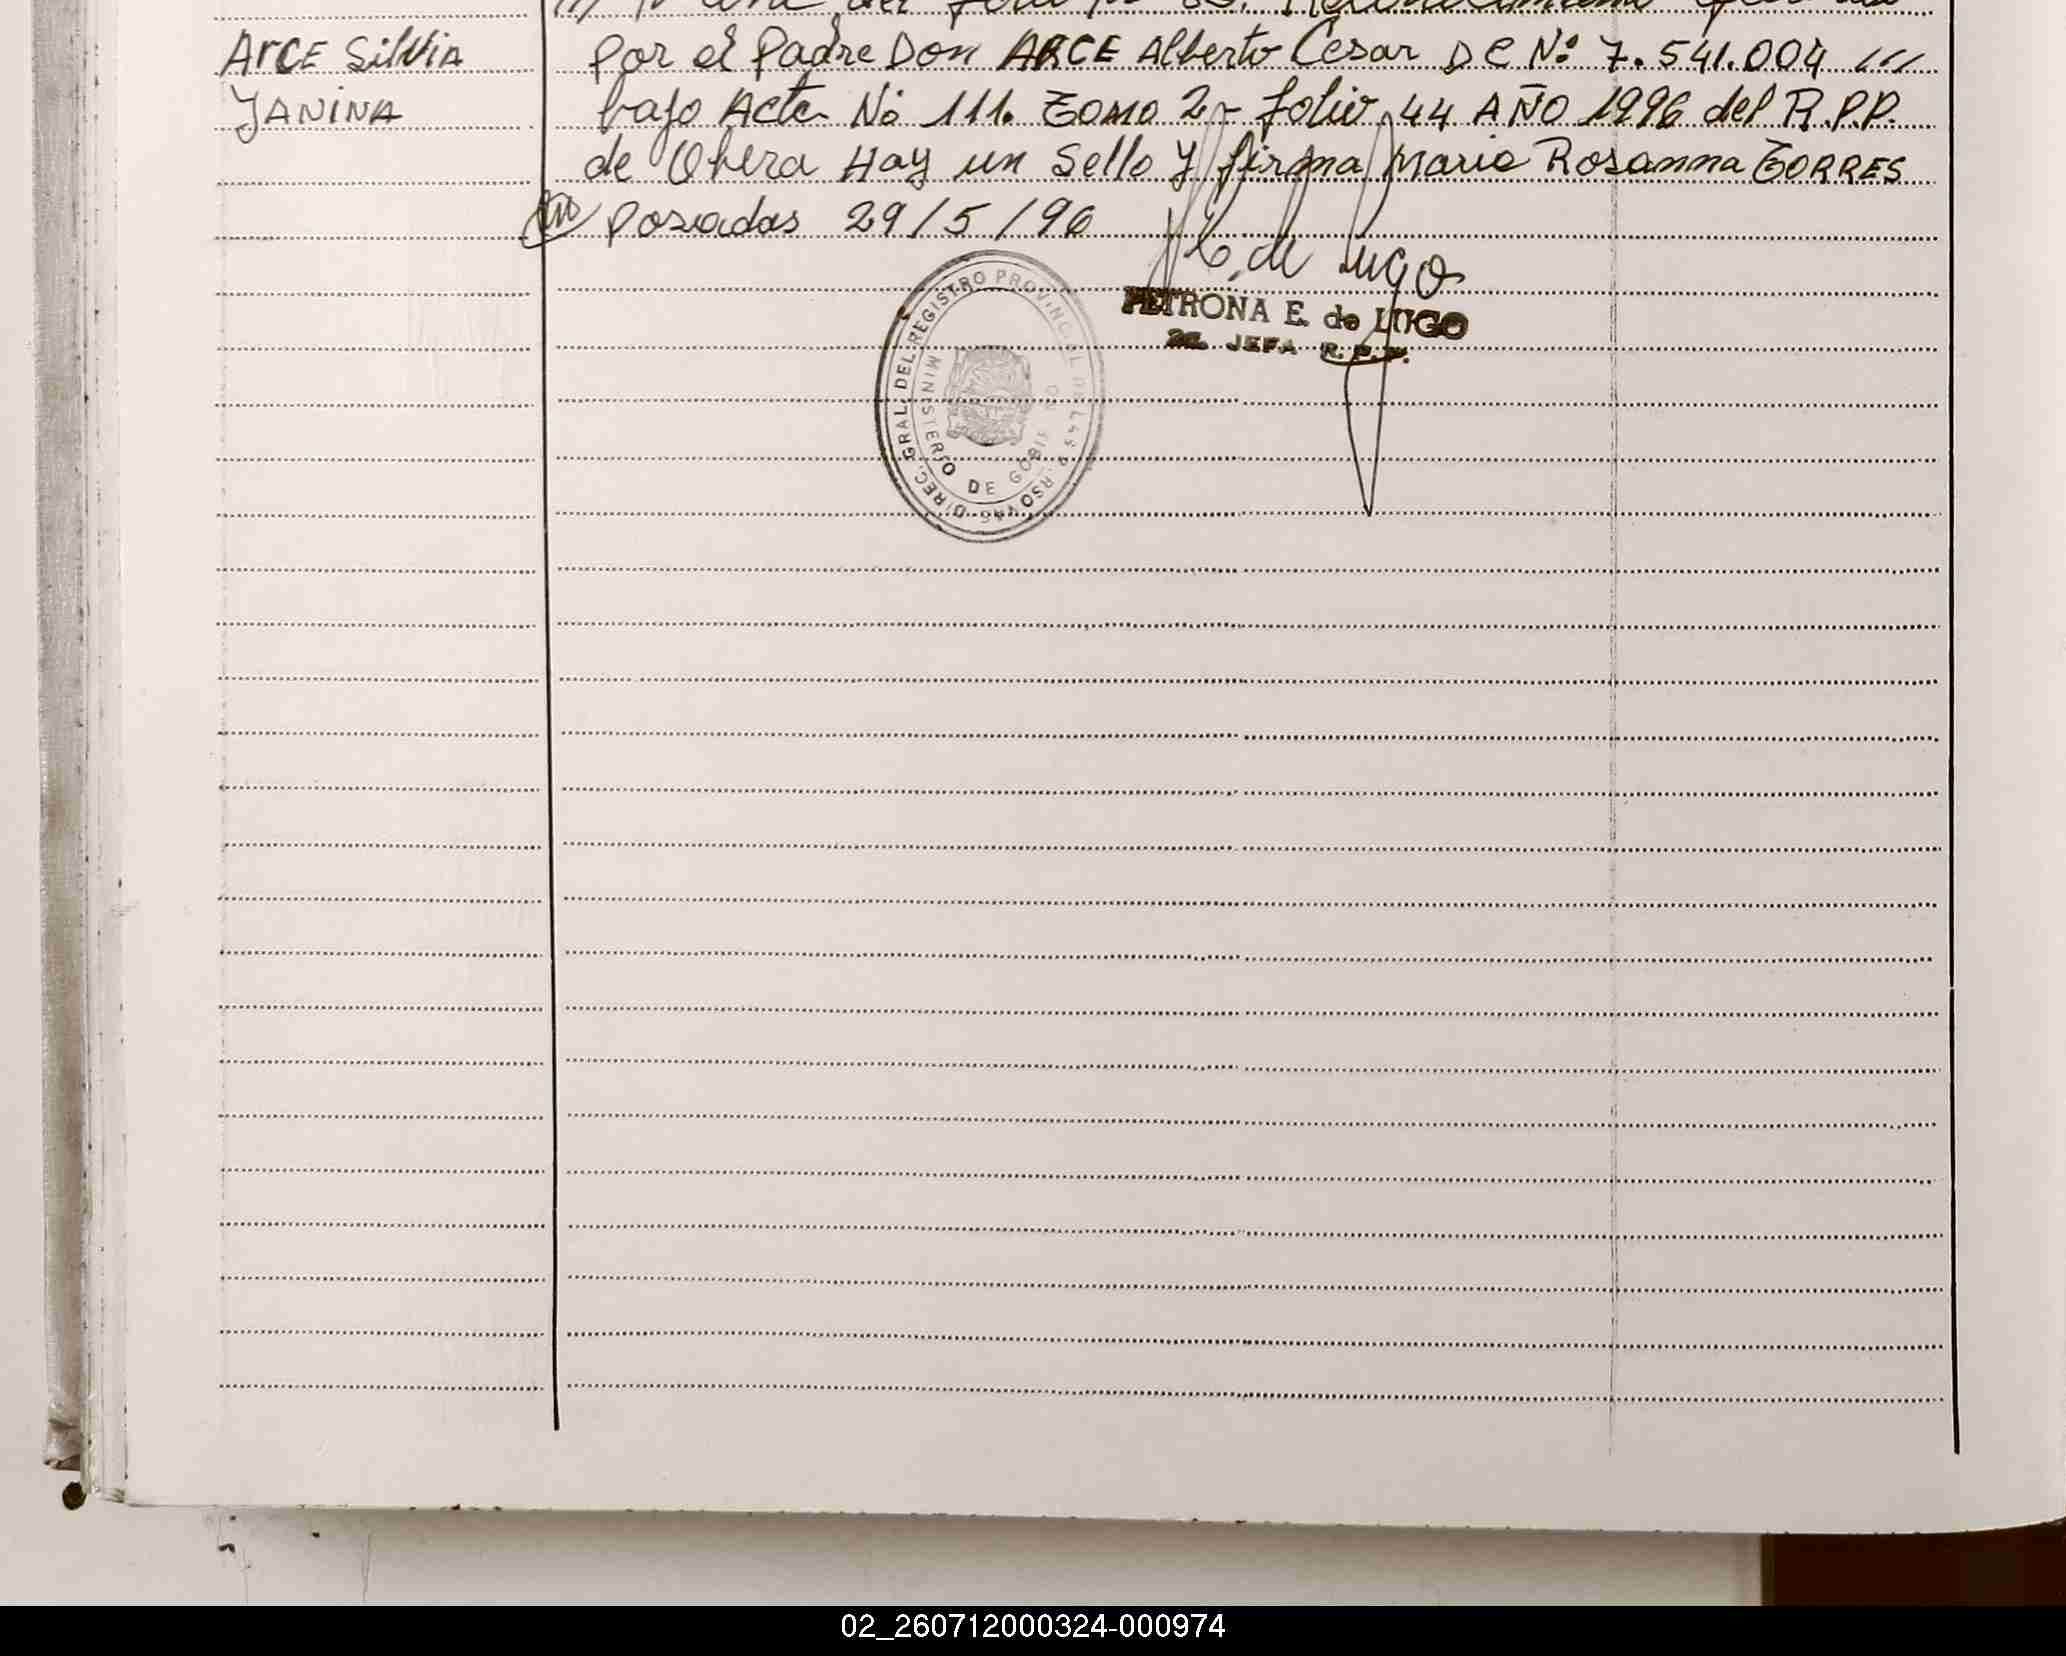 del Reconocimiento
Arce Silvia
Janina
por el padre Don ARCE Alberto Cesar D C Nº 7.541.004 ///
bajo Acta Nº 111. Tomo 2 - folio 44 AÑO 1996 del R.P.P.
de Obera Hay un Sello y firma Maria Rosanna TORRES
posadas 29/5/96
E. de Lugo
PETRONA E. de LUGO
JEFA R.P.P.
DIREC. GRAL. DEL REGISTRO PROVINCIAL DE LAS PERSONAS
MINISTERIO DE GOBIERNO
02_260712000324-000974